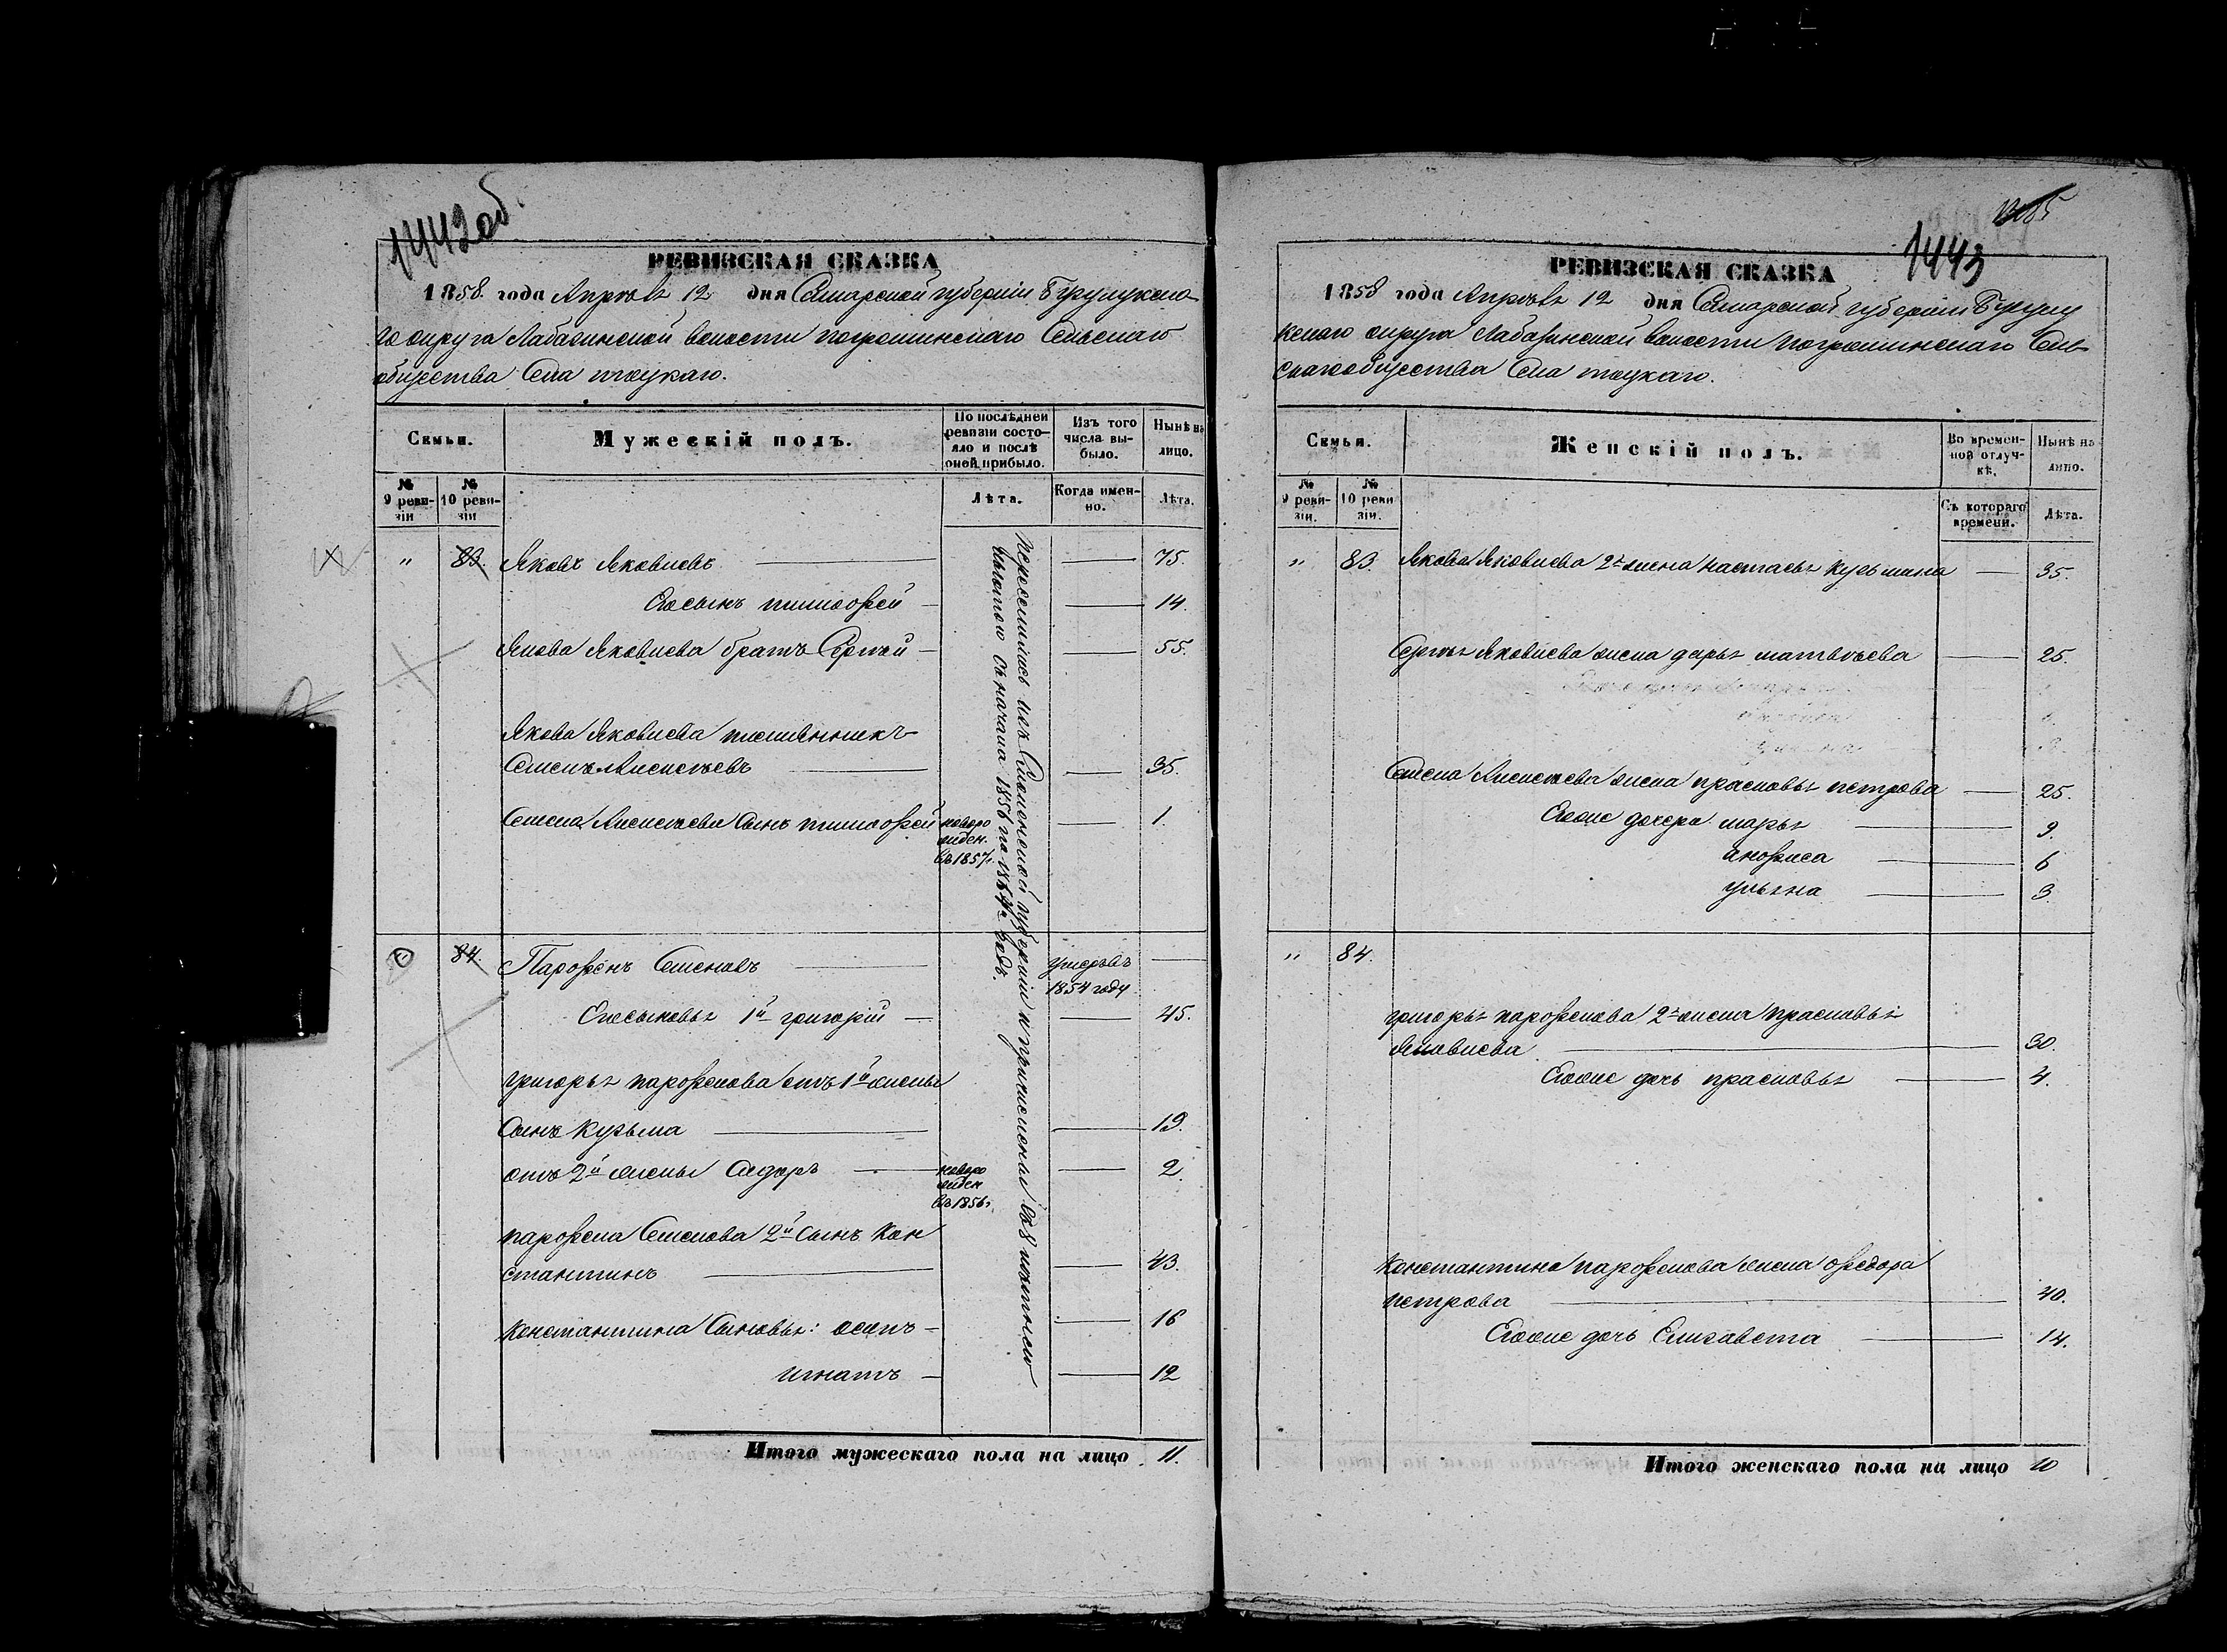 1442об
РЕВИЗСКАЯ СКАЗКА
1858 года Апрѣля 12 дня Самарской губерніи Бузулукска-
го округа Лабазинской волости погроминскаго Сельскаго
общества Села тоцкаго.
Семьи.
Мужескій полъ.
По послѣдней ревизіи состо-яло и послѣ оной прибыло.
Изъ того числа вы-было.
Нынѣ на лицо.
№ 9 реви-зіи
№ 10 реви-зіи
Лѣта.
Когда имен-но.
Лѣта.
" 83. Яковъ Яковлевъ — 75.
Его сынъ тимофей — 14.
Якова Яковлева братъ Сергѣй — 55.
Якова Яковлева племянникъ
Семенъ Алексѣевъ — 35.
Семена Алексѣева Сынъ тимофей
новоро
жден.
въ 1857г.
— 1.
84. Парфенъ Семеновъ
умеръ въ
1854 году
—
Его сыновья 1й григорій — 45.
григорья парфенова отъ 1й жены
Сынъ Кузьма — 19.
отъ 2й жены Сидоръ
новоро
жден
въ 1856г.
— 2.
парфена Семенова 2й Сынъ Кон
стантинъ — 43.
Константина Сыновья: осипъ — 16
игнатъ — 12
переселились изъ Смоленской губерніи и причислены въ 8 лѣтнюю
льготою съ начала 1856 по 1864й годъ.
Итого мужескаго пола на лицо 11.
1443
РЕВИЗСКАЯ СКАЗКА
1858 года Апрѣля 12 дня Самарской губерніи Бузулу
кскаго округа Лабазинской волости погроминскаго Сель
скаго общества Села тоцкаго.
Семьи.
Женскій полъ.
Во времен-ной отлуч-кѣ.
Нынѣ на лицо.
№ 9 реви-зіи.
№ 10 реви зіи.
Съ котораго времени.
Лѣта.
" 83. Якова Яковлева 2я жена настасья кузьмина — 35.
Сергѣя Яковлева жена дарья матвѣева — 25.
Семена Алексѣева жена прасковья петрова — 25.
Его же дочери марья — 9.
анфиса — 6
ульяна — 3
" 84.
григорья парфенова 2я жена прасковья
Яковлева — 30.
Его же дочь прасковья — 4.
Константина парфенова жена федора
петрова — 40.
Его же дочь Елизавета — 14.
Итого женскаго пола на лицо 10